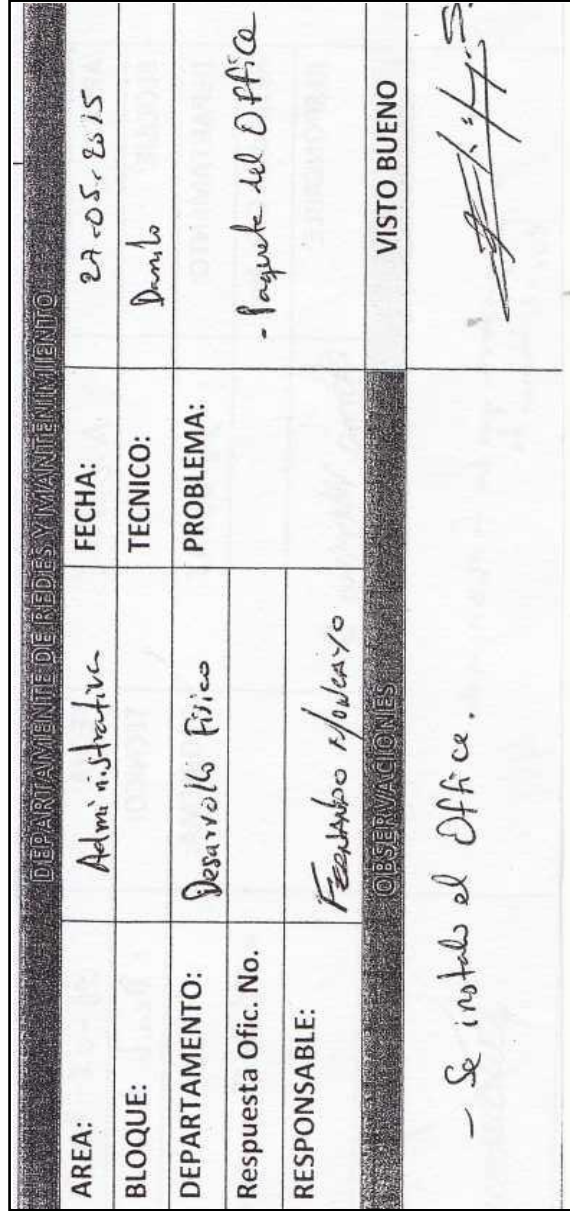 DEPARTAMENTE DE REDES Y MANTENIMIENTO
AREA: Administrativa FECHA: 27-05-2015
BLOQUE: TECNICO: Danilo
DEPARTAMENTO: Desarrollo Físico PROBLEMA: - Paquete del Office
Respuesta Ofic. No.
RESPONSABLE: FERNANDO MONCAYO
OBSERVACIONES VISTO BUENO
- Se instalo el Office.